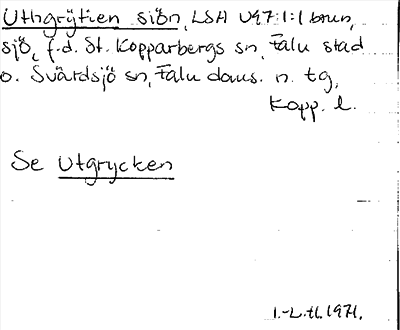 Uthgrÿtien siön, LSA U97:1:1 brun,
sjö, f.d. St. Kopparbergs sn, Falu stad
o. Svärdsjö sn, Falu doms. n. tg,
Kopp. l.
Se Utgrycken
I.-L.tl. 1971.